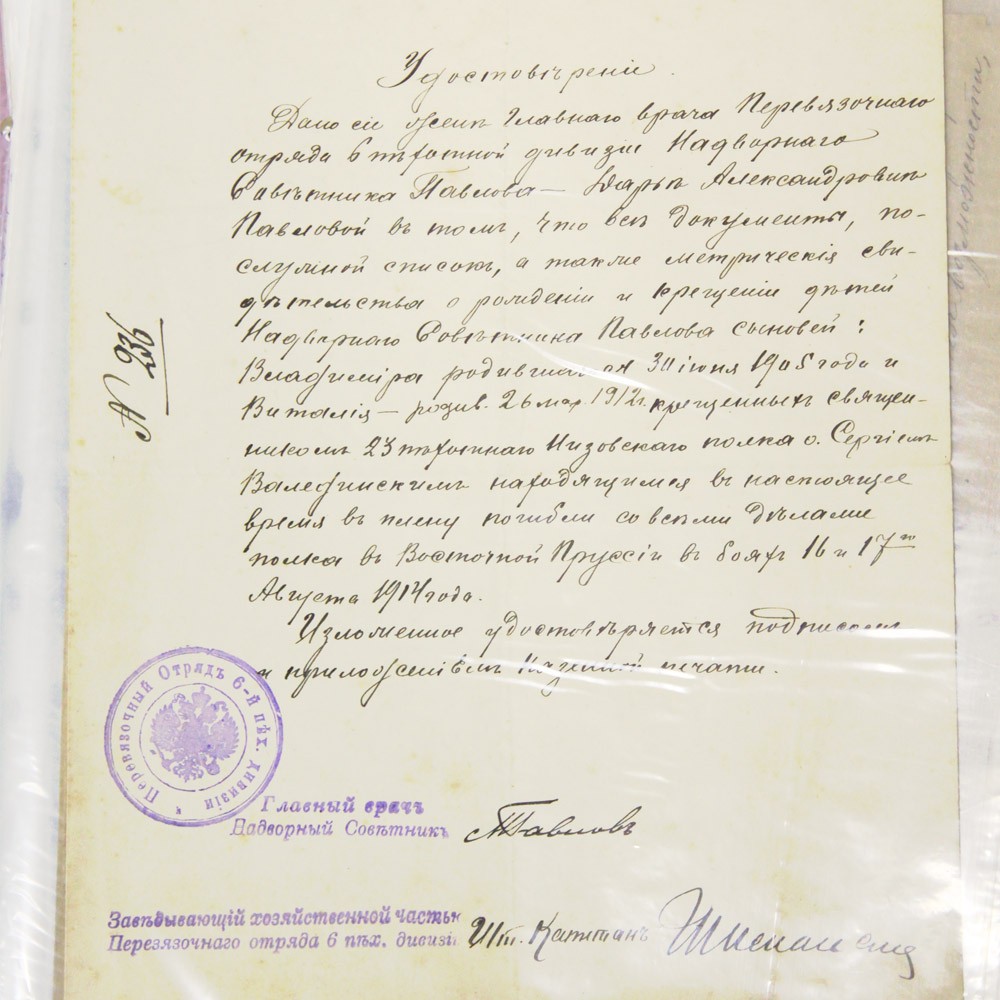 Удостовѣреніе.
Дано сіе женѣ Главнаго врача Перевязочнаго
отряда 6 пѣхотной дивизіи Надворнаго
Совѣтника Павлова — Дарьѣ Александровнѣ
Павловой въ томъ, что всѣ документы, по-
служной списокъ, а также метрическія сви-
дѣтельства о рожденіи и крещеніи дѣтей
Надворнаго Совѣтника Павлова сыновей:
Владиміра родившагося 30 іюня 1905 года и
Виталія — родив. 26 мар. 1912 г. крещенныхъ священ-
никомъ 23 пѣхотнаго Низовскаго полка о. Сергіемъ
Валединскимъ находящимся въ настоящее
время въ плену погибли со всѣми дѣлами
полка въ Восточной Пруссіи въ бояхъ 16 и 17го
Августа 1914 года.
Изложенное удостовѣряется подписью
и приложеніемъ казенной печати.
№ 236
Перевязочный Отрядъ 6-й пѣх. дивизіи
Главный врачъ
Надворный Совѣтникъ Павловъ
Завѣдывающій хозяйственной частью
Перевязочнаго отряда 6 пѣх. дивизіи Шт. Капитанъ